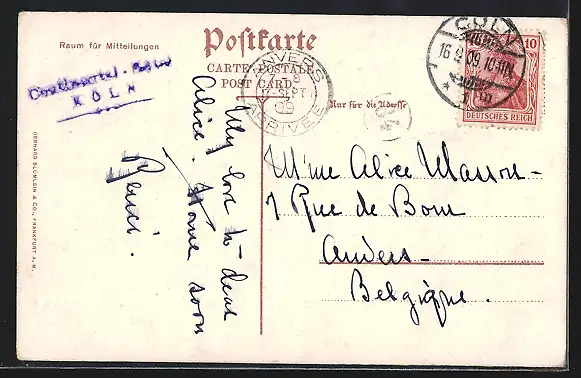 Raum für Mitteilungen
Postkarte
CARTE POSTALE
POST CARD
Nur für die Adresse
KÖLN
ANVERS
17 SEPT
09
ARRIVÉE
CÖLN
16 9 09 10-11
10
DEUTSCHES REICH
My love to dear
Alice. Home soon
M'me Alice Masson-
1 Rue de Bom
Anvers-
Belgique.
GERHARD BLÜMLEIN & CO., FRANKFURT A. M.